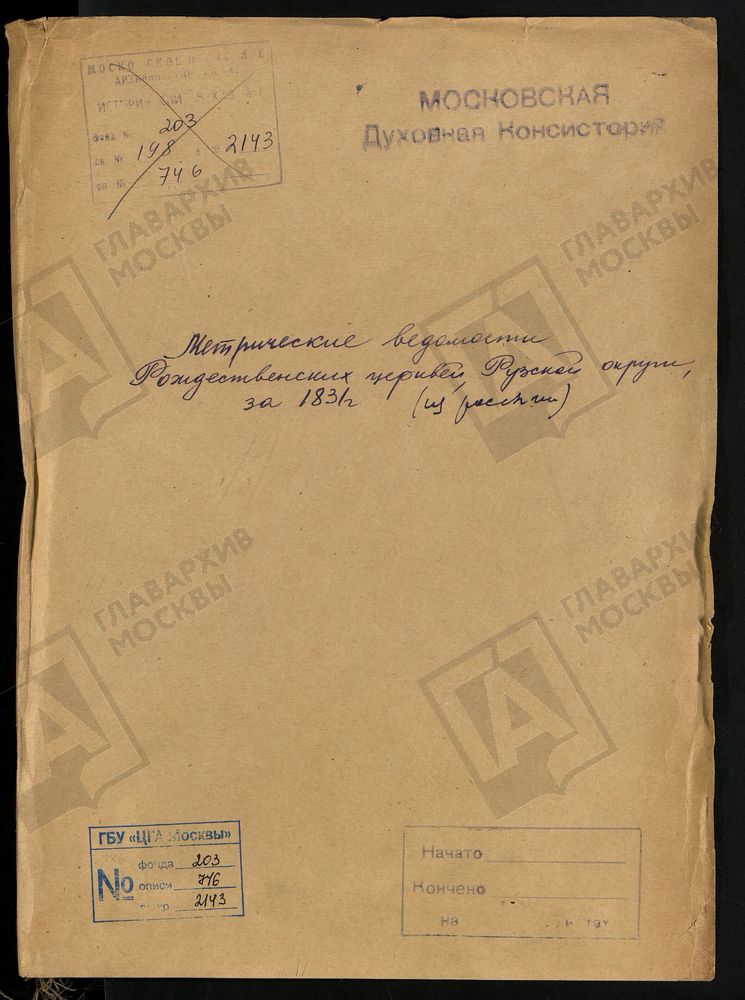 МОСКОВСКОЕ
АРХИВНОЕ
ИСТОРИЧЕСКИЙ АРХИВ
фонд № 203
св. № 198 д. № 2143
оп № 746
МОСКОВСКАЯ
Духовная Консистория
Метрические ведомости
Рождественских церквей, Рузской округи,
за 1831г (из россыпи)
ГБУ «ЦГА Москвы»
№ фонда 203
описи 746
ед.хр. 2143
Начато
Кончено
на листах
ГЛАВАРХИВ
МОСКВЫ
ГЛАВАРХИВ
МОСКВЫ
ГЛАВАРХИВ
МОСКВЫ
ГЛАВАРХИВ
МОСКВЫ